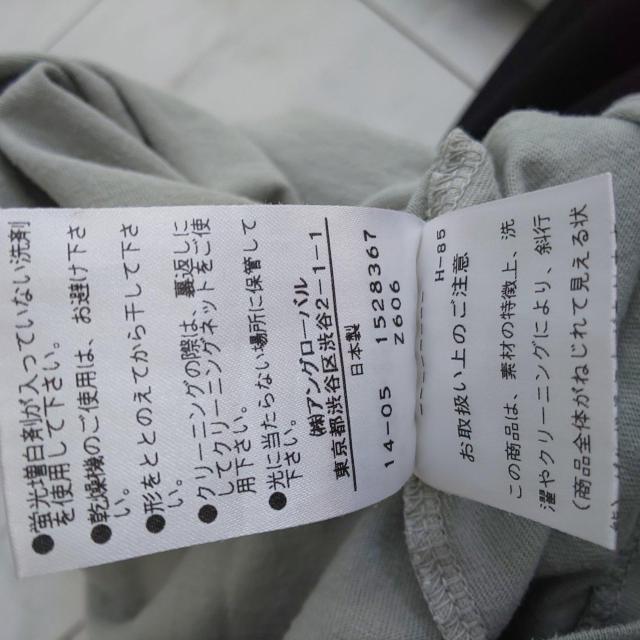 ●蛍光増白剤が入っていない洗剤
を使用して下さい。
●乾燥機のご使用は、お避け下さ
い。
●形をととのえてから干して下さ
い。
●クリーニングの際は、裏返しに
してクリーニングネットをご使
用下さい。
●光に当たらない場所に保管して
下さい。
㈱アングローバル
東京都渋谷区渋谷2-1-1
日本製
14-05 1528367
Z606
H-85
お取扱い上のご注意
この商品は、素材の特徴上、洗
濯やクリーニングにより、斜行
(商品全体がねじれて見える状